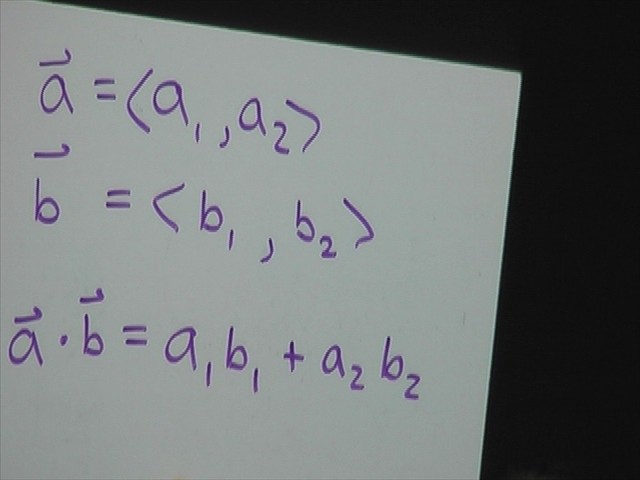 a⃗ = ⟨a₁, a₂⟩
b⃗ = ⟨b₁, b₂⟩
a⃗ · b⃗ = a₁b₁ + a₂b₂